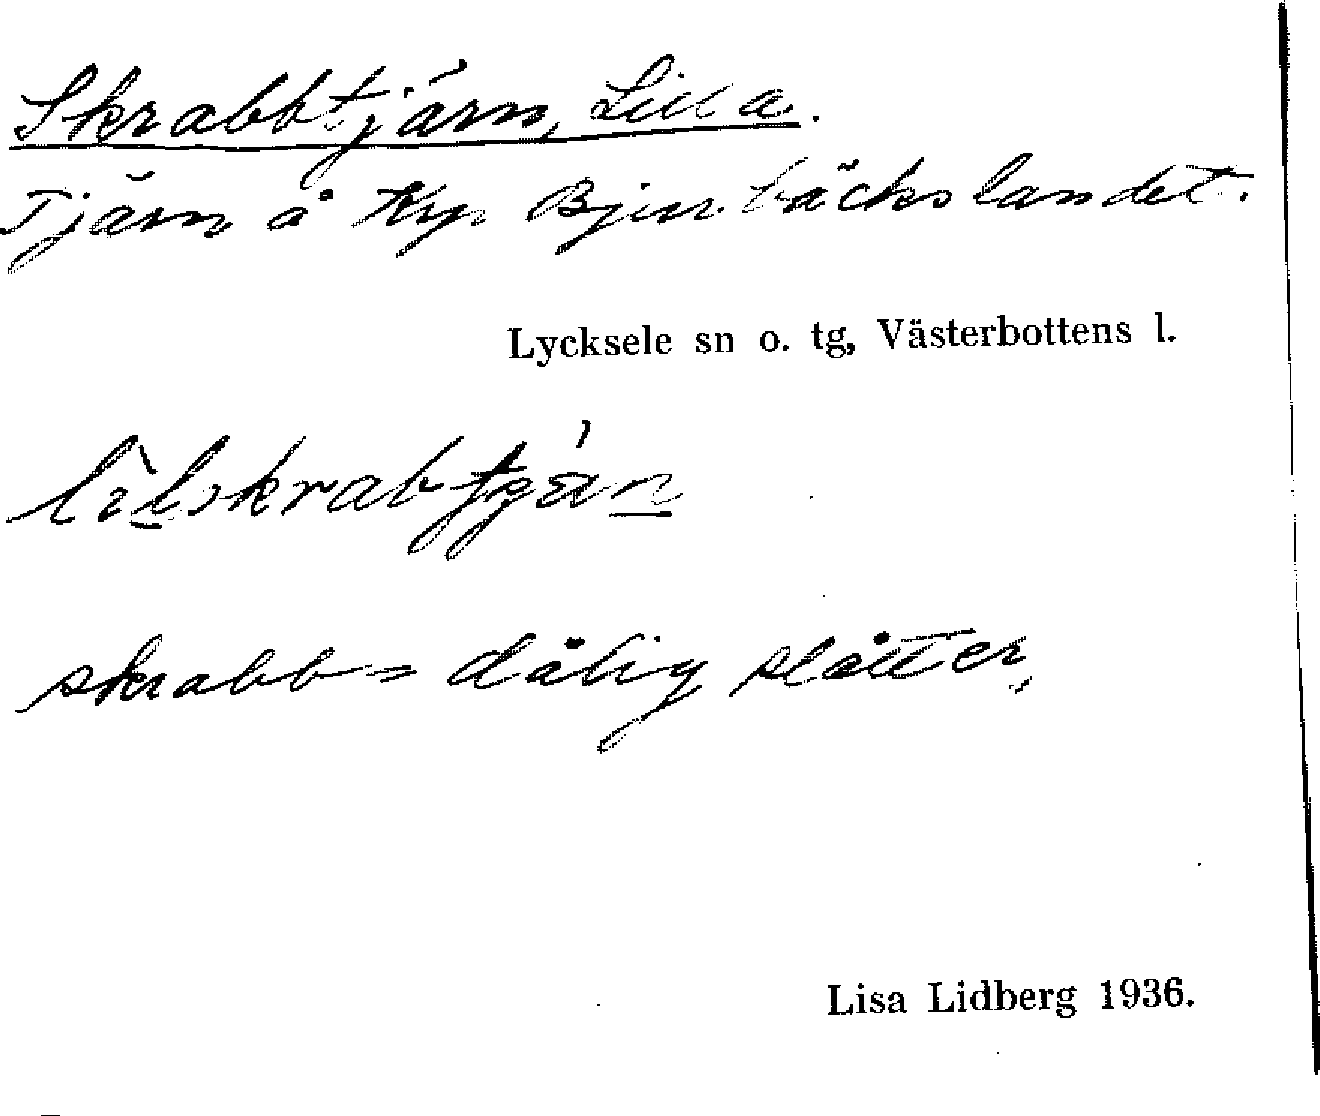 Skrabbtjärn, Lilla.
Tjärn å Krp. Bjurbäckslandet.
Lycksele sn o. tg, Västerbottens l.
skrabb = dålig slåtter,
Lisa Lidberg 1936.